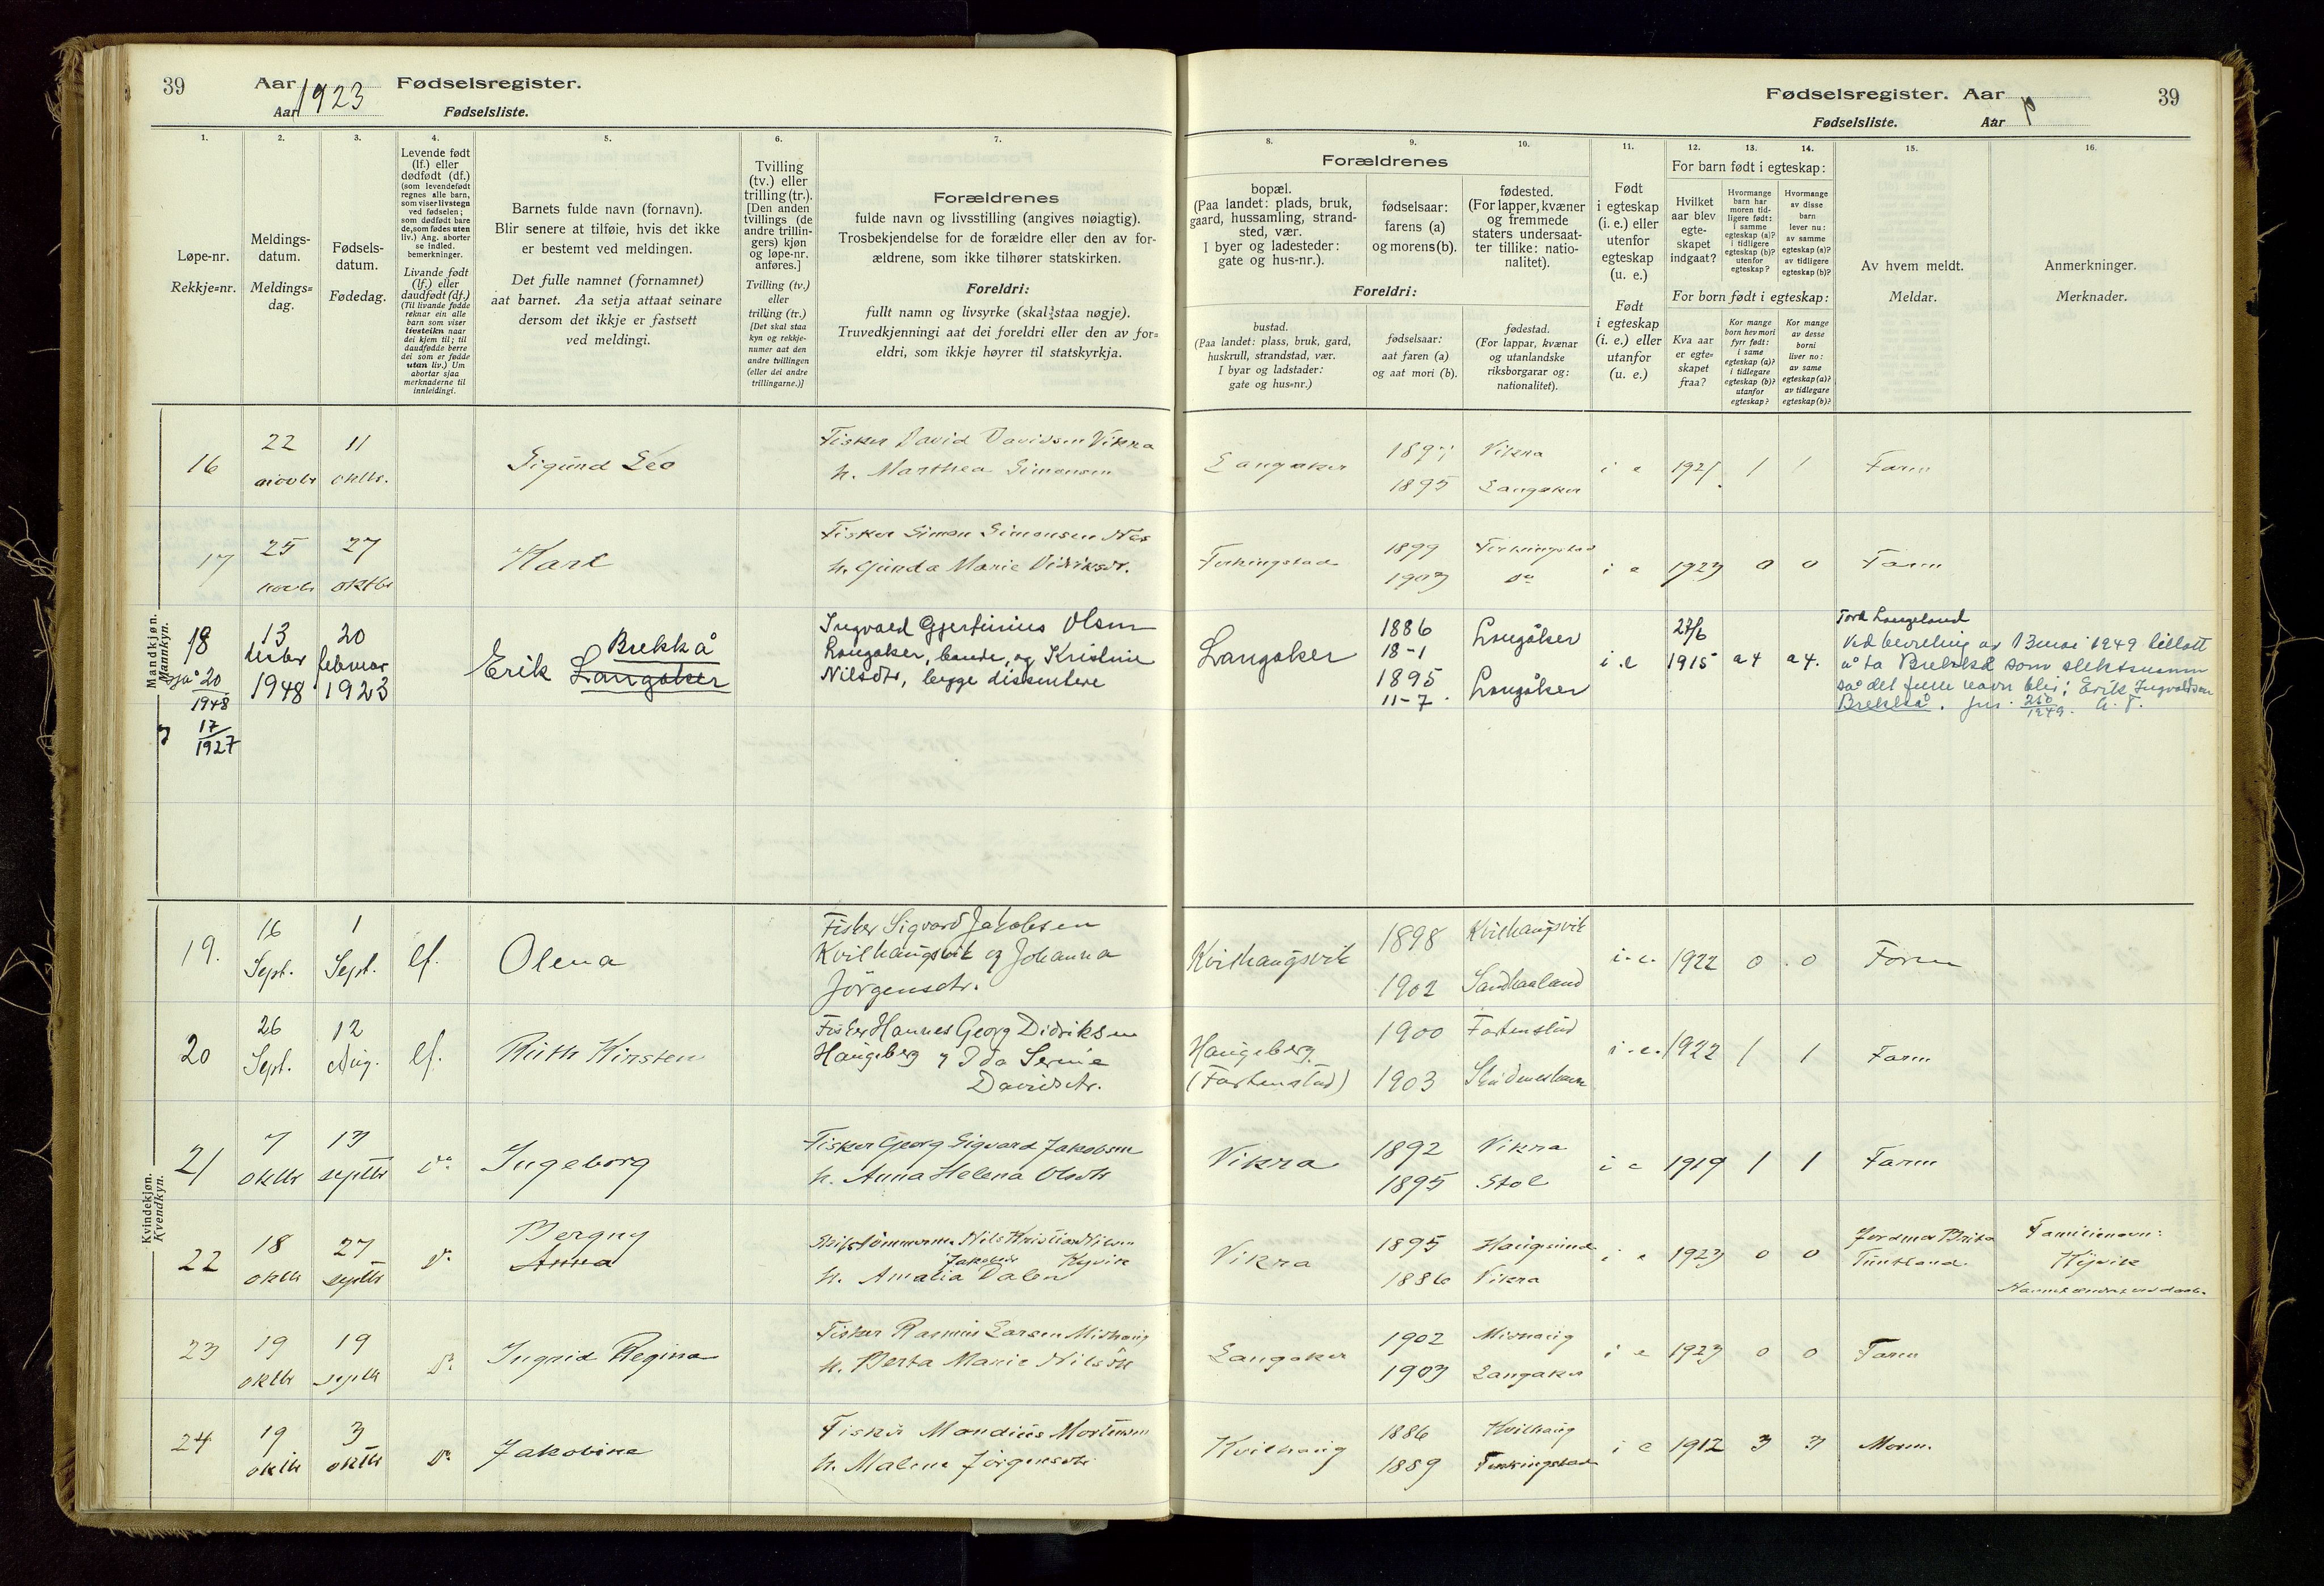 39
Aar 1923
Fødselsregister.
Aar
Fødselsliste.
1.
Løpe-nr.
Rekkje=nr.
2.
Meldings-
datum.
Meldings=
dag.
3.
Fødsels-
datum.
Fødedag.
4.
Levende født
(lf.) eller
dødfødt (df.)
(som levendefødt
regnes alle barn,
som viser livstegn
ved fødselen;
som dødfødt bare
de, som fødes uten
liv.) Ang. aborter
se indled.
bemerkninger.
Livande født
(lf.) eller
daudfødt (df.)
(Til livande fødde
reknar ein alle
barn som viser
livsteikn naar
dei kjem til; til
daudfødde berre
dei som er fødde
utan liv.) Um
abortar sjaa
merknaderne til
innleidingi.
5.
Barnets fulde navn (fornavn).
Blir senere at tilføie, hvis det ikke
er bestemt ved meldingen.
Det fulle namnet (fornamnet)
aat barnet. Aa setja attaat seinare
dersom det ikkje er fastsett
ved meldingi.
6.
Tvilling
(tv.) eller
trilling (tr.).
[Den anden
tvillings (de
andre trillin-
gers) kjøn
og løpe-nr.
anføres.]
Tvilling (tv.)
eller
trilling (tr.)
[Det skal staa
kyn og rekkje-
numer aat den
andre tvillingen
(eller dei andre
trillingarne.)]
7.
Forældrenes
fulde navn og livsstilling (angives nøiagtig).
Trosbekjendelse for de forældre eller den av for-
ældrene, som ikke tilhører statskirken.
Foreldri:
fullt namn og livsyrke (skal staa nøgje).
Truvedkjenningi aat dei foreldri eller den av for=
eldri, som ikkje høyrer til statskyrkja.
Fødselsregister. Aar
39
Fødselsliste. Aar
8.
Forældrenes
bopæl.
(Paa landet: plads, bruk,
gaard, hussamling, strand-
sted, vær.
I byer og ladesteder:
gate og hus-nr.).
Foreldri:
bustad.
(Paa landet: plass, bruk, gard,
huskrull, strandstad, vær.
I byar og ladstader:
gate og hus=nr.)
9.
fødselsaar:
farens (a)
og morens (b).
fødselsaar:
aat faren (a)
og aat mori (b).
10.
fødested.
(For lapper, kvæner
og fremmede
staters undersaat-
ter tillike: natio-
nalitet).
fødestad.
(For lappar, kvænar
og utanlandske
riksborgarar og:
nationalitet).
11.
Født
i egteskap
(i. e.) eller
utenfor
egteskap
(u. e.)
Født
i egteskap
(i. e.) eller
utanfor
egteskap
(u. e.)
12.
13.
14.
For barn født i egteskap:
Hvilket
aar blev
egte-
skapet
indgaat?
Hvormange
barn har
moren tid-
ligere født:
i samme
egteskap (a)?
i tidligere
egteskap (b)?
utenfor
egteskap?
Hvormange
av disse
barn
lever nu:
av samme
egteskap (a)?
av tidligere
egteskap (b)?
For born født i egteskap:
Kva aar
er egte=
skapet
fraa?
Kor mange
born hev mori
fyrr født:
i same
egteskap (a)?
i tidlegare
egteskap (b)?
utanfor
egteskap?
Kor mange
av desse
borni
liver no:
av same
egteskap (a)?
av tidlegare
egteskap (b)?
15.
Av hvem meldt.
Meldar.
16.
Anmerkninger.
Merknader.
Mandkjøn.
Mannkyn.
16
22
novbr
11
oktbr.
Sigund Leo
Fisker David Davidsen Vikra
h. Marthea Simonsen
Langaker
1895
Vikra
Langaker
i e
1921
1
1
Farm
17
25
novbr
27
oktbr
Karl
Fisker Simon Simonsen Nes
h. Gunda Marie Didriksdr.
Ferkingstad
1899
1903
Ferkingstad
do
i e
1923
0
0
Farm
18
sjå 20
1948
17
1927
13
desbr
1948
20
februar
1923
Brekkå
Erik Langaker
Ingvald Gjertinius Olsen
Langaker, bonde, og Kristine
Nilsdtr, begge dissentere
Langaker
1886
18-1
1895
11-7.
Langåker
Langåker
i.e
27/6
1915
a 4
a 4.
Tord Langeland
Ved bevilling av 13 mai 1949 tillatt
å ta Brekkå som slektsnamn
så det fulle navn blir: Erik Ingvaldsen
Brekkå. Jnr. 250
1949.
Kvindekjøn.
Kvendkyn.
19.
16
Sept.
1
Sept.
lf.
Olena
Fisker Sigvard Jakobsen
Kvilhaugsvik og Johanna
Jörgensdtr.
Kvilhaugsvik
1898
1902
Kvilhaugsvik
Sandhaaland
i.e.
1922
0
0
Farm
20
26
Sept.
12
Aug.
lf.
Ruth Kirsten
Fisker Hannes Georg Didriksen
Haugeberg og Ida Serine
Davidsdtr.
Haugeberg
1900
1903
Skudeneshavn
i.e.
1922
1
1
Farm
21
7
oktbr
13
septbr
do
Ingeborg
Fisker Georg Sigvard Jakobsen
h. Anna Helena Olsdtr
Vikra
1892
1895
Vikra
Stol
i e
1919
1
1
Farm
22
18
oktbr
27
septbr
do
Bergny
Anna
Skibstömmerm. Nils Kristian Nilsen
Kyvik
h. Amalia Dalen
Vikra
1895
1886
Haugesund
Vikra
i e
1923
0
0
Jordmor Brita
Tuntland.
Familienavn:
Kyvik
23
19
oktbr
19
septbr
do
Ingrid Regina
Fisker Rasmus Larsen Midhaug
h. Berta Marie Nilsdtr
Langaker
1902
1903
Midhaug
Langaker
i e
1923
0
0
Farm
24
19
oktbr
3
oktbr
do
Jakobina
Fisker Mandius Mortensen
h. Malene Jörgensdtr
Kvilhaug
1886
1889
Kvilhaug
Ferkingstad
i e
1912
3
3
Morm.